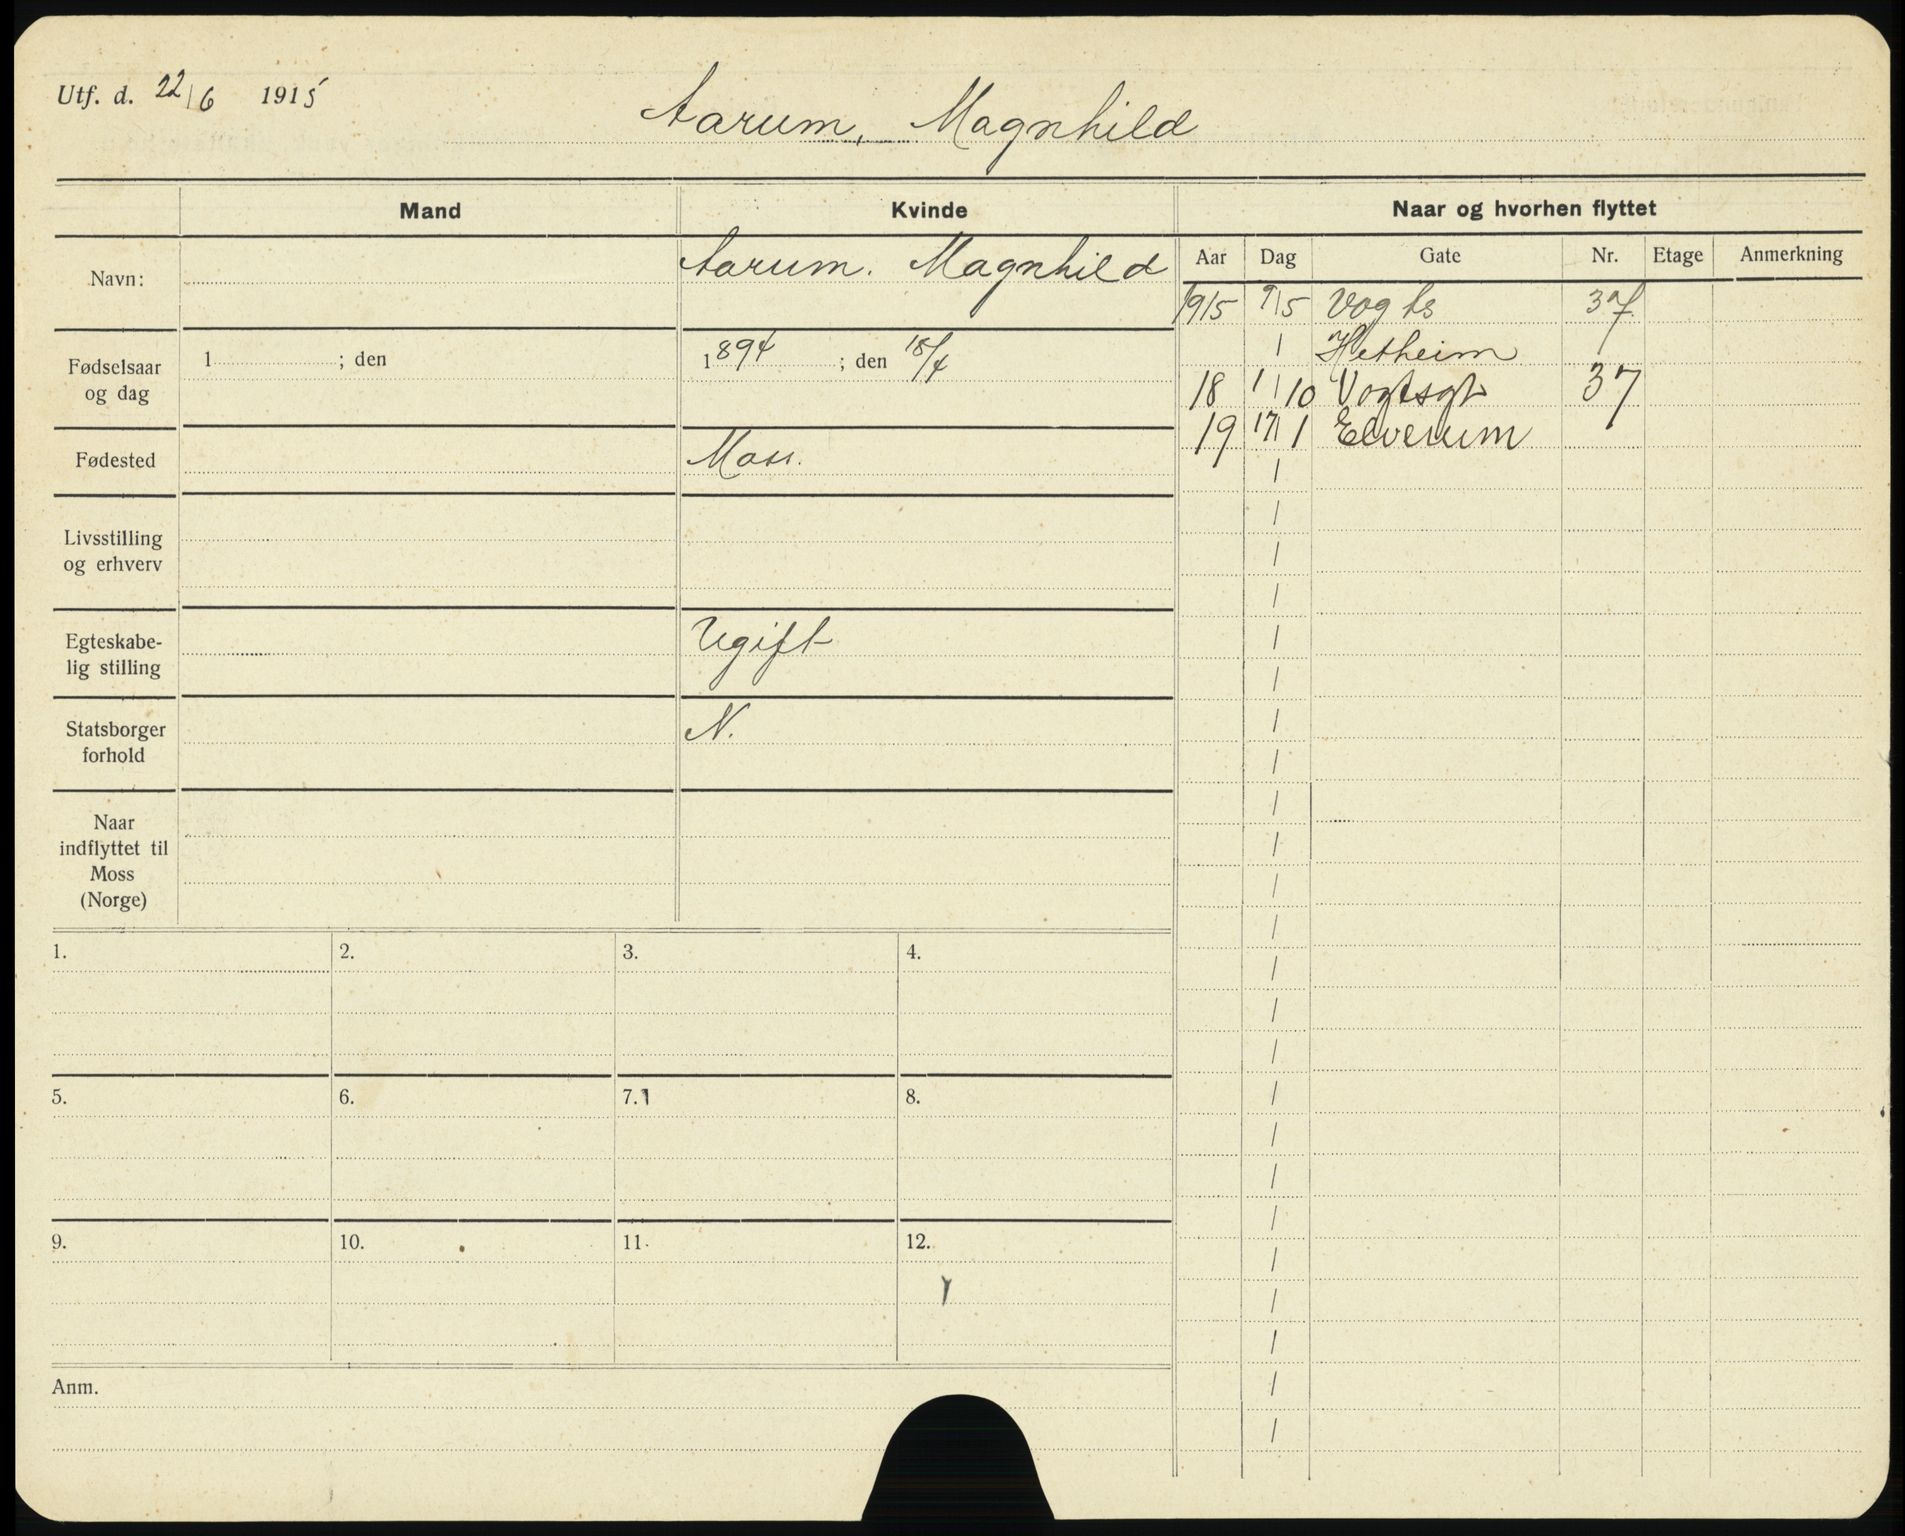 Utf. d. 22/6 1915
Aarum, Magnhild
Mand
Kvinde
Naar og hvorhen flyttet
Navn:
Aarum. Magnhild
Aar Dag Gate Nr. Etage Anmerkning
1915 9/5 Vogts 37
/ Hetheim
18 1/10 Vogtsgt 37
19 17/1 Elverum
Fødselsaar
og dag
1 ; den
1894 ; den 18/4
Fødested
Moss.
Livsstilling
og erhverv
Egteskabe-
lig stilling
Ugift
Statsborger
forhold
N.
Naar
indflyttet til
Moss
(Norge)
1. 2. 3. 4.
5. 6. 7. 8.
9. 10. 11. 12.
Anm.